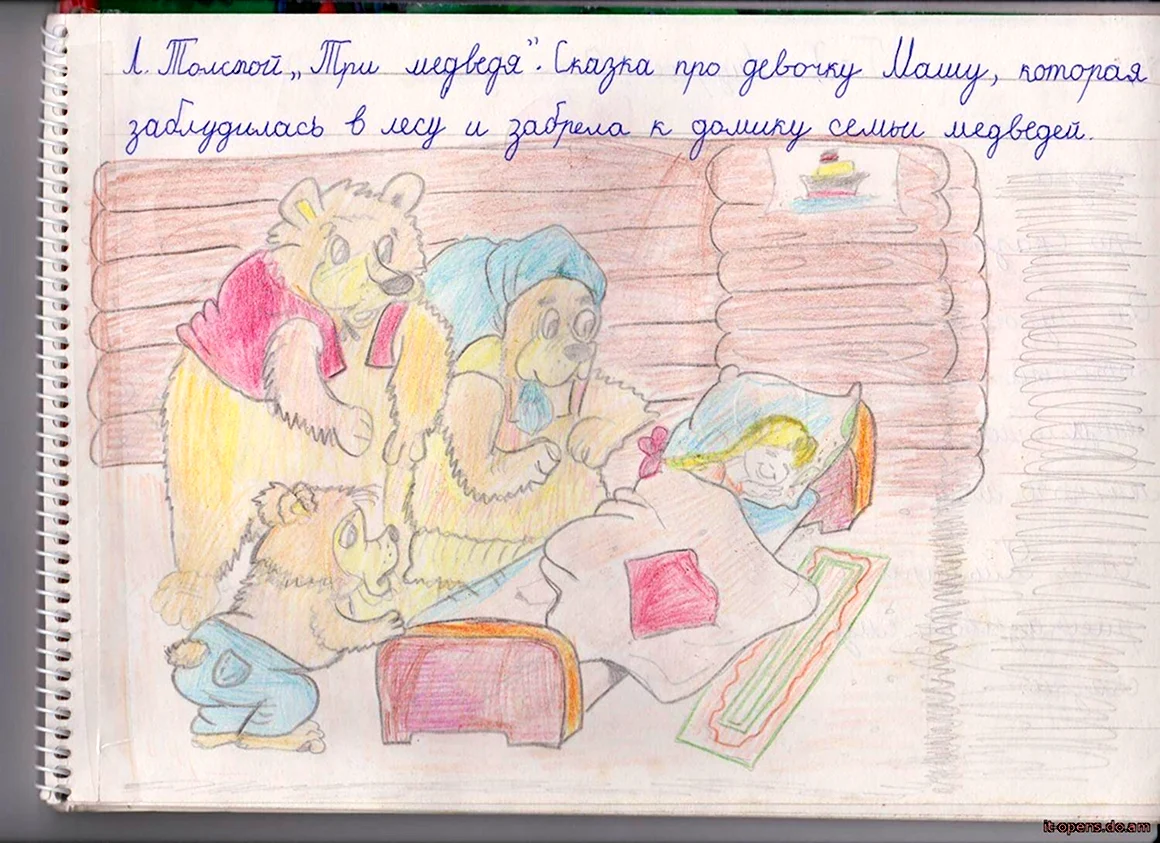 Л. Толстой „Три медведя". Сказка про девочку Машу, которая
заблудилась в лесу и забрела к домику семьи медведей.
it-opens.do.am